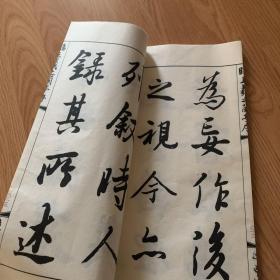 為妄作後
之視今亦
列叙時人
錄其所述